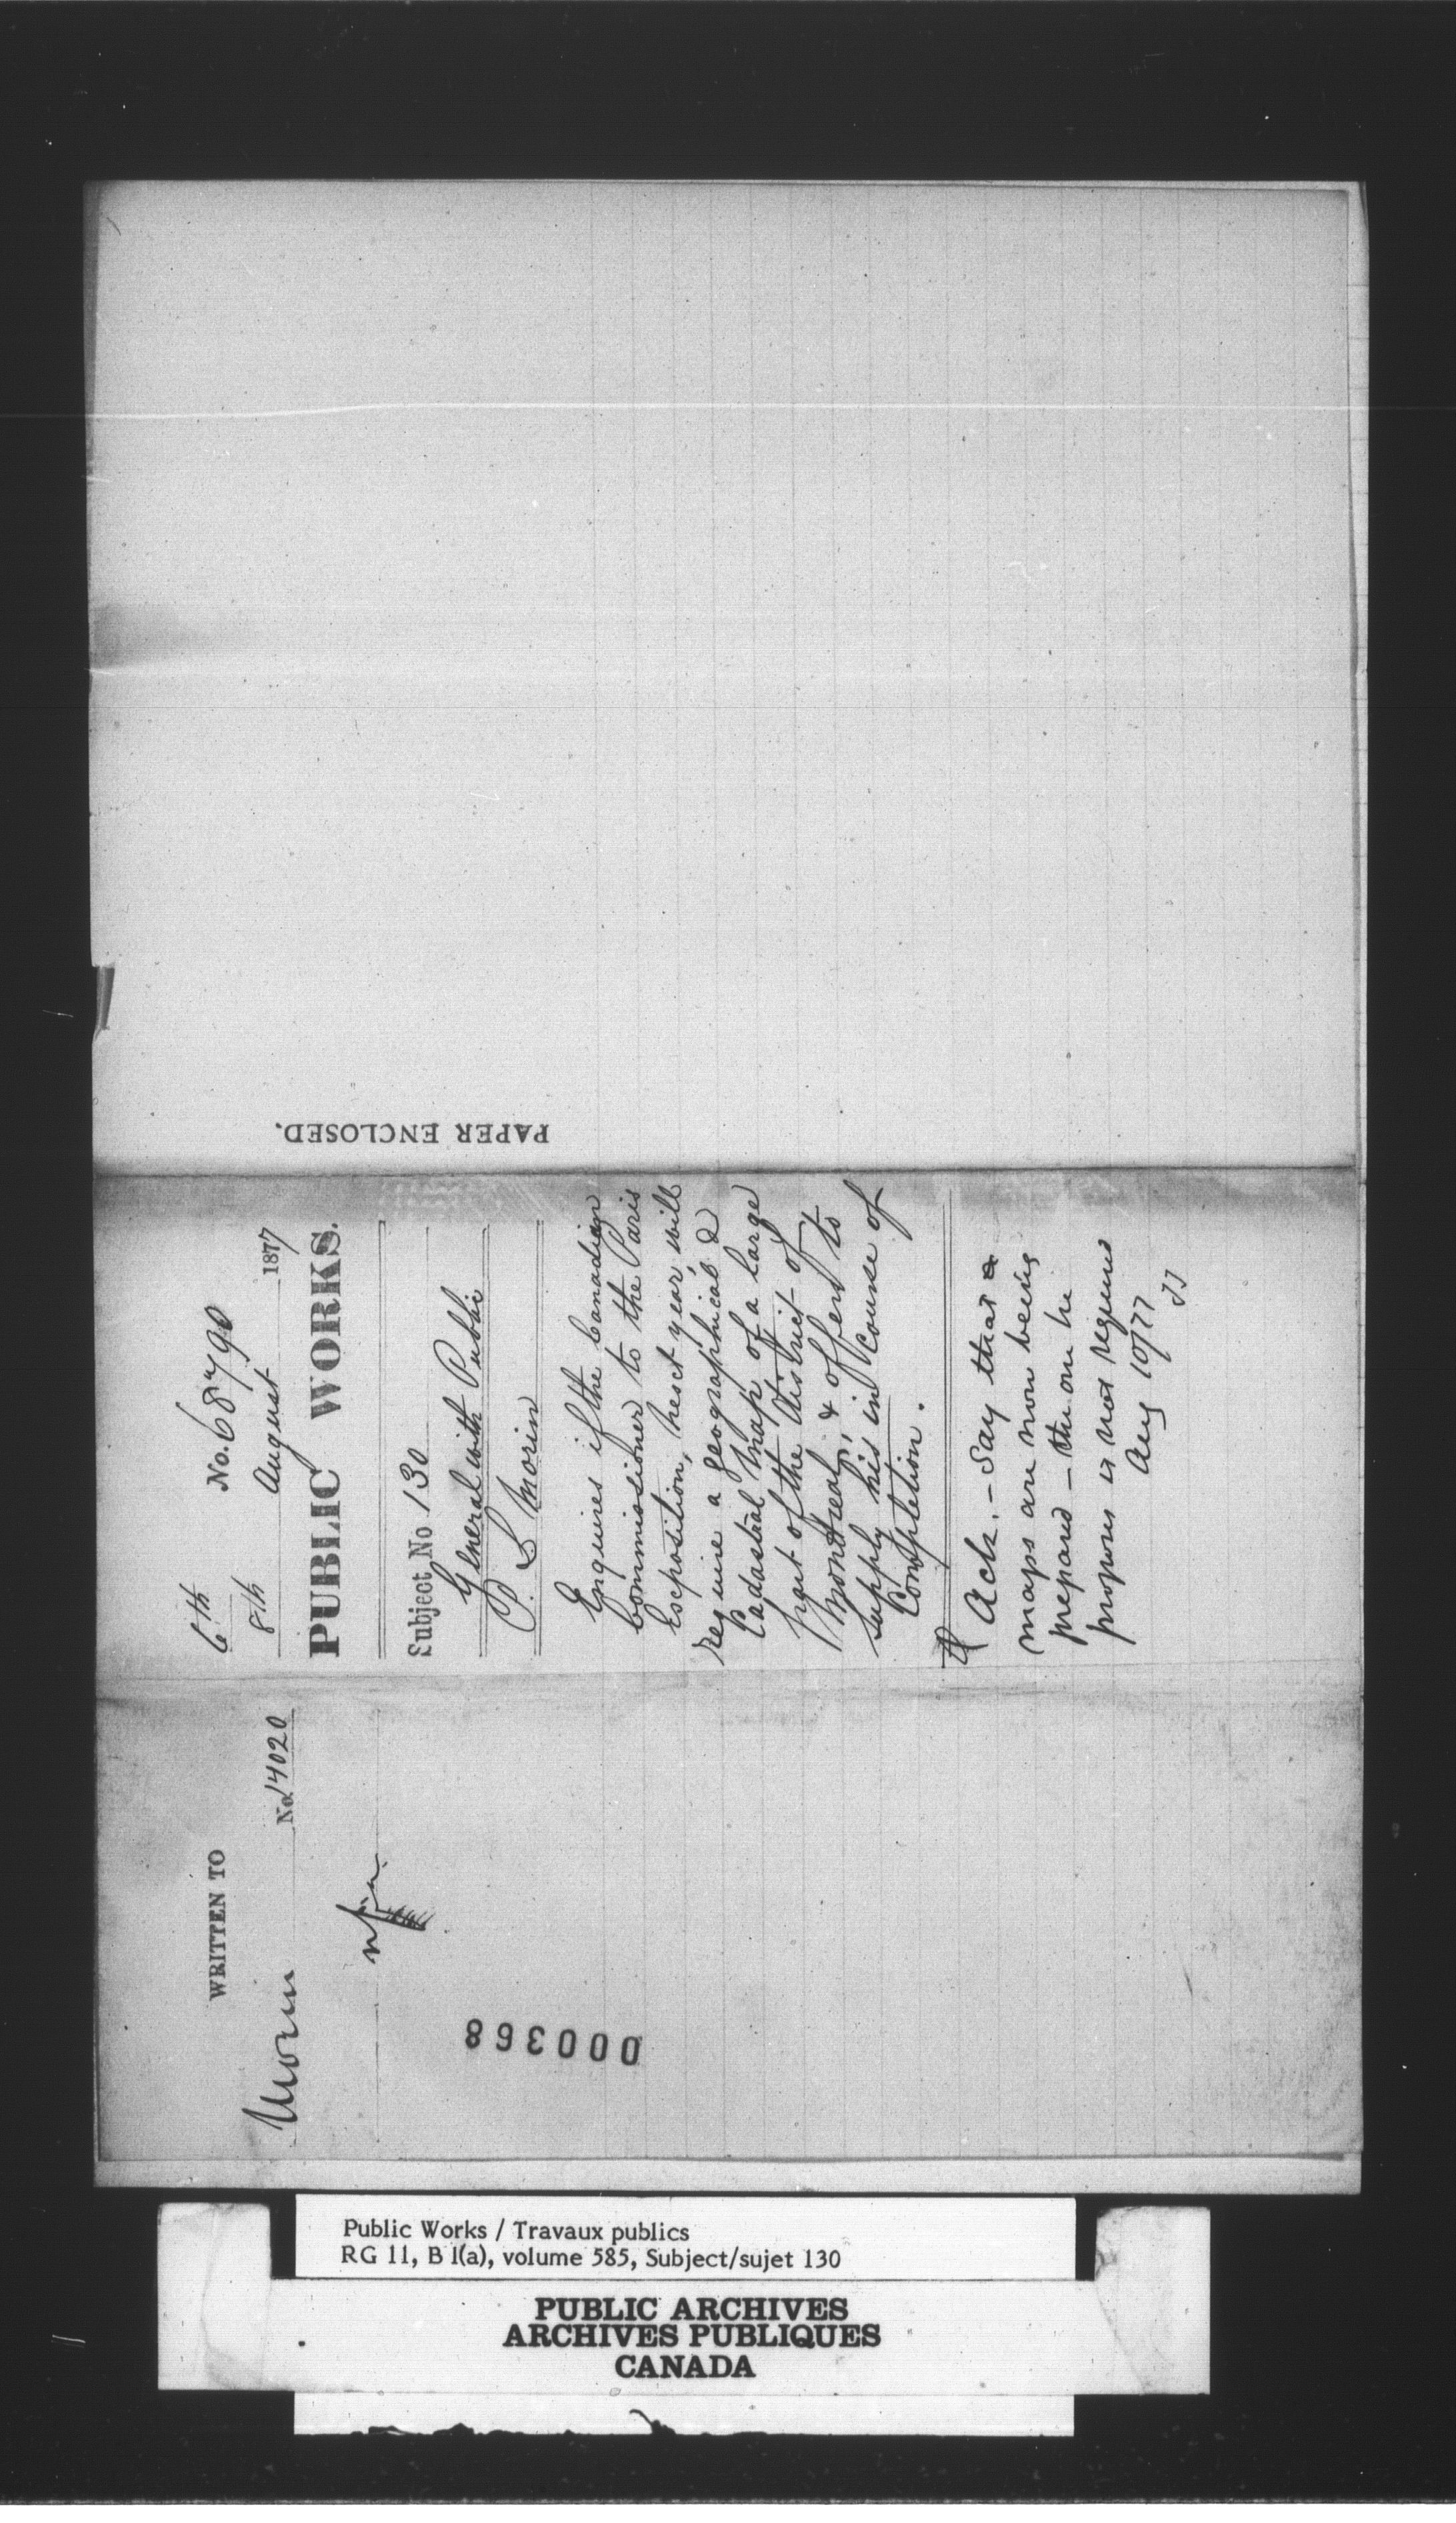 WRITTEN TO
Morin No. 14020
000368
6th No. 68790
8th August 1877
PUBLIC WORKS.
Subject No 130
General with Public
P. L Morin
Enquires if the Canadian
Commissioner to the Paris
Exposition, next year, will
require a geographical &
Cadastral Map of a large
part of the District of
Montreal, & offers to
supply his in course of
Completion.
Ack. - Say that
maps are now being
prepared - the one he
proposes is not required
Aug 10/77
JJ
PAPER ENCLOSED.
Public Works / Travaux publics
RG 11, B 1(a), volume 585, Subject/sujet 130
PUBLIC ARCHIVES
ARCHIVES PUBLIQUES
CANADA